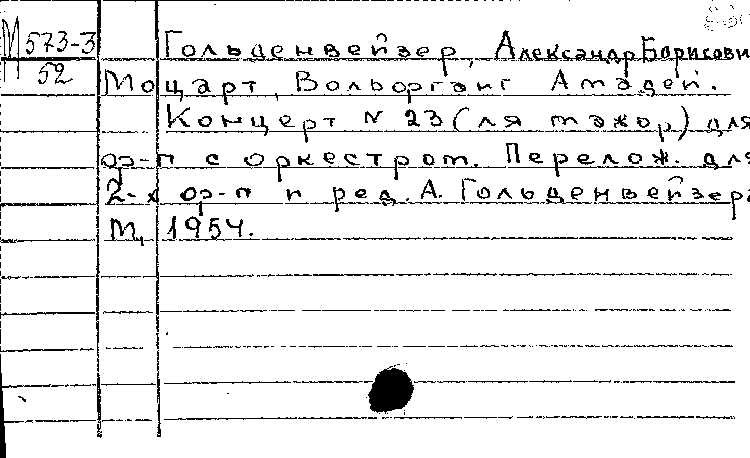 М 573-3
52
Гольденвейзер, Александр Борисови
Моцарт, Вольфганг Амадей.
Концерт N 23 (ля мажор) для
ф-п с оркестром. Перелож. для
2-х ф-п и ред. А. Гольденвейзера
М, 1954.